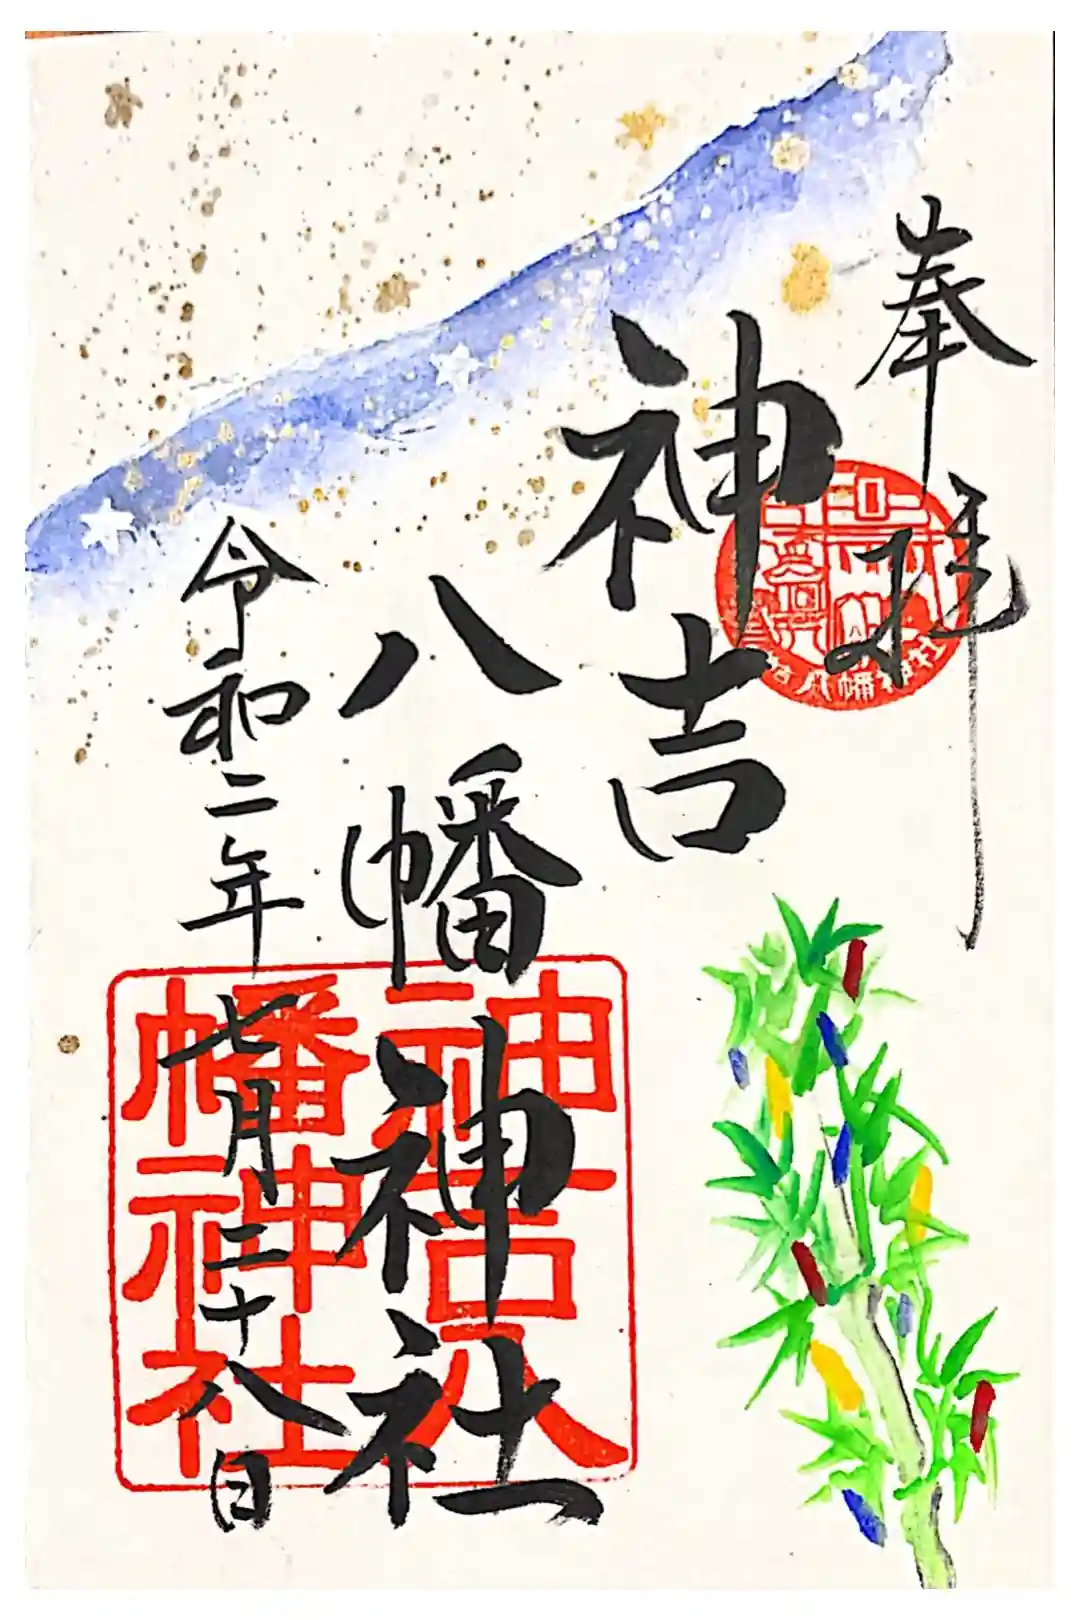 奉拝
神吉
八幡神社
令和二年七月二十八日
神吉八
幡神社
吉八幡神社